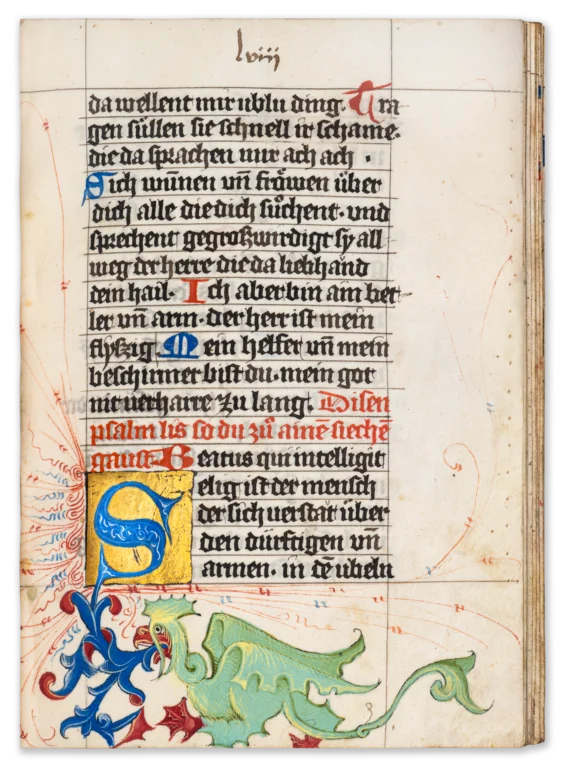 lviii
da wellent mir ublu ding. Tra
gen süllen sie schnell ir schame.
die da sprachen mir ach ach .
Sich wūnen vn̄ fröwen über
dich alle die dich suͦchent. vnd
sprechent gegroßwirdigt sy all
weg der herre die da lieb hand
dein hail. Ich aber bin ain bet
ler vn̄ arm. der herr ist mein
flyszig. Mein helfer vn̄ mein
beschirmer bist du. mein got
nit verharre zu lang. Disen
psalm lis so du zuͦ ainē siechē
gaust. Beatus qui intelligit
Selig ist der mensch
der sich verstät über
den dürftigen vn̄
armen. in dē ubeln